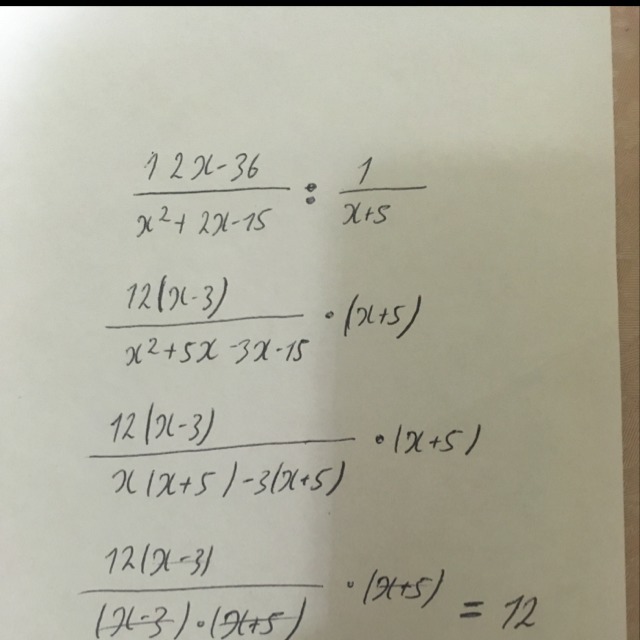 (12x-36)/(x²+2x-15) : 1/(x+5)
12(x-3)/(x²+5x-3x-15) · (x+5)
12(x-3)/(x(x+5)-3(x+5)) · (x+5)
12(x-3)/((x-3)·(x+5)) · (x+5) = 12